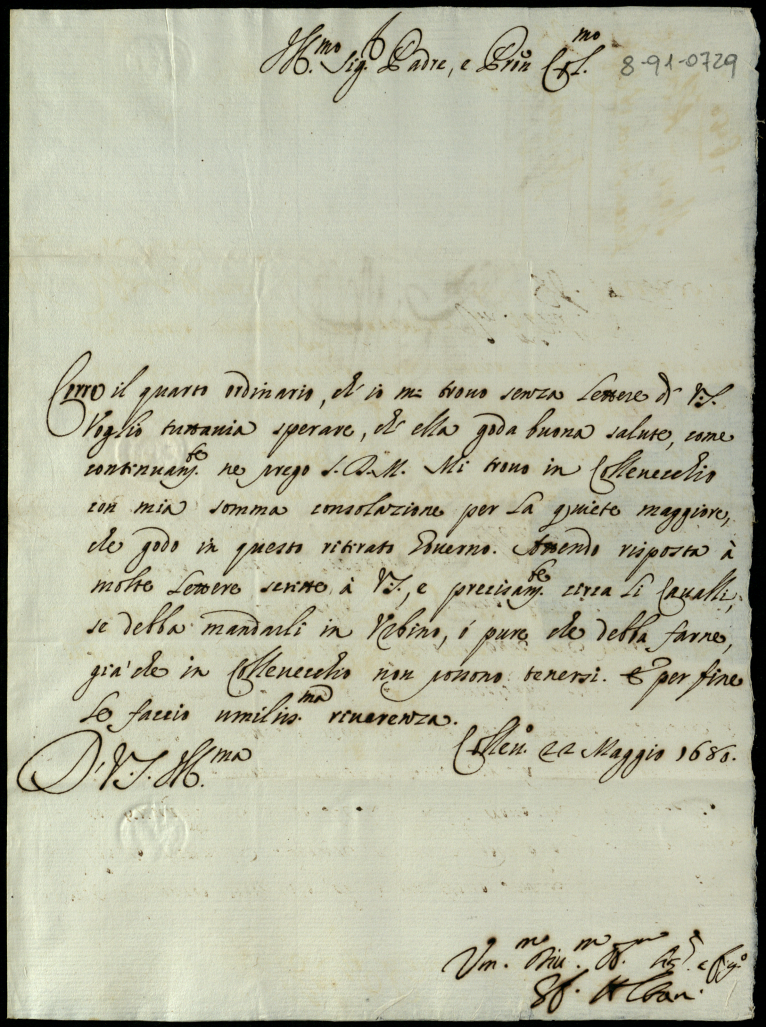 Ill.mo Sig. Padre, e Pron Col.mo 8-91-0729
Corre il quarto ordinario, ch' io mi trovo senza Lettere di V.S.
Voglio tuttavia sperare, ch' ella goda buona salute, come
continuam.te ne prego S.D.M. Mi trovo in Collevecchio
con mia somma consolazione per La quiete maggiore,
che godo in questo ritirato Governo. Attendo risposta à
molte Lettere scritte à V.S., e precisam.te circa Li Cavalli,
se debba mandarli in Urbino, ò pure che debba farne,
già che in Collevecchio non possono tenersi. E per fine
Le faccio umiliss.ma riverenza.
D' V.S. Ill.ma Collev.o 22 Maggio 1680.
Um.mo Div.mo e
Albani